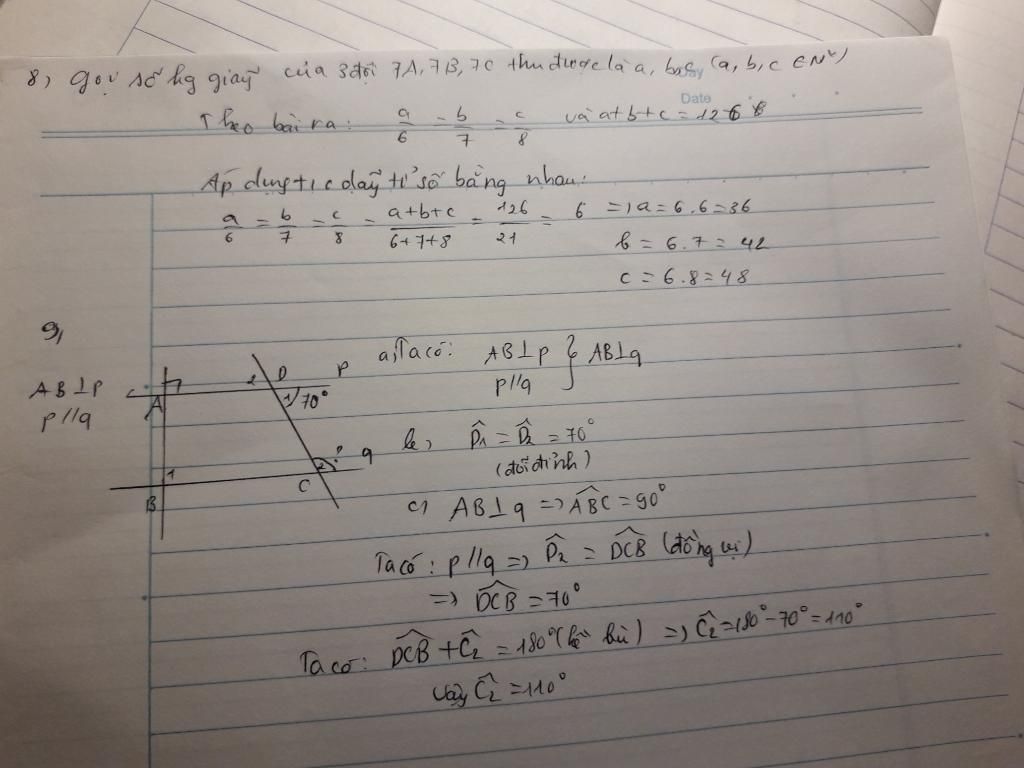 8, Gọi số kg giấy của 3 đội 7A, 7B, 7C thu được là a, b, c (a, b, c ∈ N*)
Date
Theo bài ra: a/6 = b/7 = c/8 và a+b+c = 126
Áp dụng t/c dãy tỉ số bằng nhau:
a/6 = b/7 = c/8 = a+b+c/6+7+8 = 126/21 = 6 => a = 6.6 = 36
b = 6.7 = 42
c = 6.8 = 48
9,
AB⊥P
p//q
A
2 D P
1 70°
B
1
C 2 ? q
a, Ta có: AB⊥p
p//q } AB⊥q
b, D̂1 = D̂2 = 70°
(đối đỉnh)
c, AB⊥q => ABC = 90°
Ta có: p//q => D̂2 = DCB (đồng vị)
=> DCB = 70°
Ta có: DCB + Ĉ2 = 180° (kề bù) => Ĉ2 = 180° - 70° = 110°
Vậy Ĉ2 = 110°